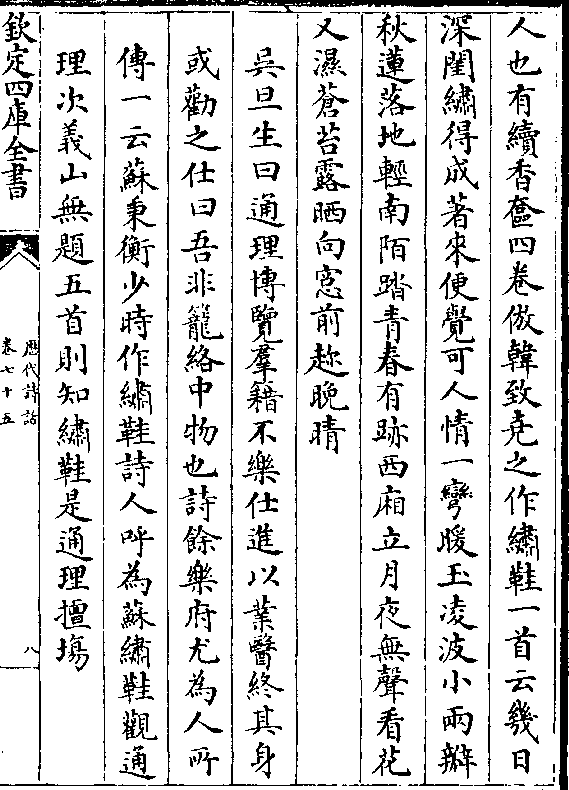 人也有續香奩四卷倣韓致堯之作繡鞋一首云幾日
深閨繡得成著來便覺可人情一彎暖玉凌波小兩瓣
秋蓮落地輕南陌踏青春有跡西廂立月夜無聲看花
又濕蒼苔露晒向窓前趂晚晴
吳旦生曰通理博覽羣籍不樂仕進以業醫終其身
或勸之仕曰吾非籠絡中物也詩餘樂府尤為人所
傳一云蘇秉衡少時作繡鞋詩人呼為蘇繡鞋觀通
理次義山無題五首則知繡鞋是通理擅塲
欽定四庫全書
歴代詩話
卷七十五
八